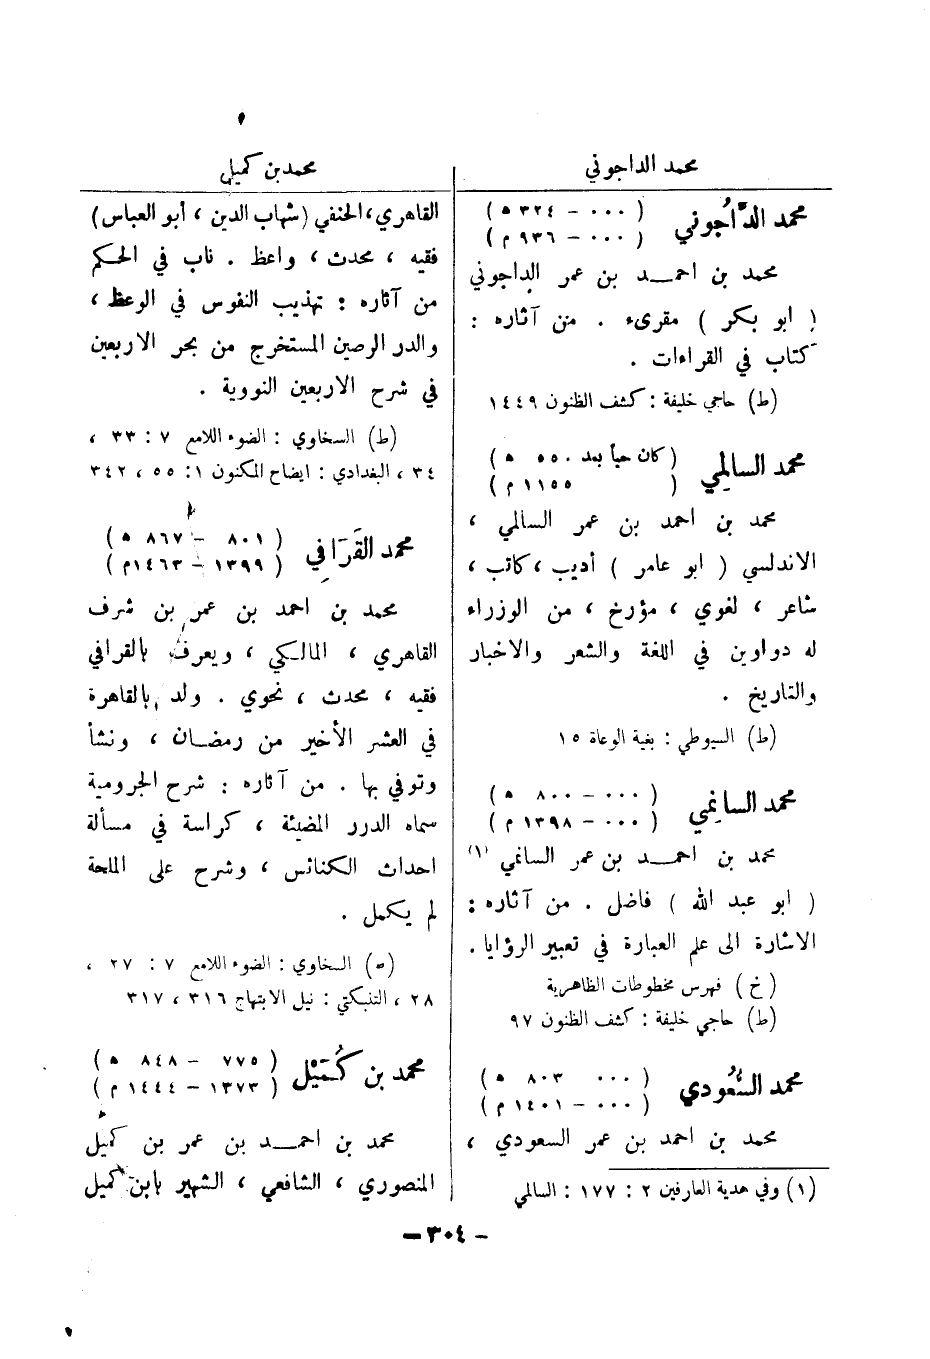 محمد الداجوني
محمد الدَّاجُوني
( ٠٠٠ - ٣٢٤ ه )
( ٠٠٠ - ٩٣٦ م )
محمد بن احمد بن عمر الداجوني
( ابو بكر ) مقرىء . من آثاره :
كتاب في القراءات .
(ط) حاجي خليفة : كشف الظنون ١٤٤٩
محمد السالمي
( كان حياً بعد ٥٥٠ ه )
( ١١٥٥ م )
محمد بن احمد بن عمر السالمي ،
الاندلسي ( ابو عامر ) أديب ، كاتب ،
شاعر ، لغوي ، مؤرخ ، من الوزراء
له دواوين في اللغة والشعر والاخبار
والتاريخ .
(ط) السيوطي : بغية الوعاة ١٥
محمد السانِمي
( ٠٠٠ - ٨٠٠ ه )
( ٠٠٠ - ١٣٩٨ م )
محمد بن احمد بن عمر السانمي (١)
( ابو عبد الله ) فاضل . من آثاره :
الاشارة الى علم العبارة في تعبير الرؤايا .
( خ ) فهرس مخطوطات الظاهرية
(ط) حاجي خليفة : كشف الظنون ٩٧
محمد السُّعُودي
( ٠٠٠ ٨٠٣ ه )
( ٠٠٠ - ١٤٠١ م )
محمد بن احمد بن عمر السعودي ،
(١) وفي هدية العارفين ٢ : ١٧٧ : السالمي
محمد بن كميل
القاهري، الحنفي (شهاب الدين ، أبو العباس)
فقيه ، محدث ، واعظ . ناب في الحكم
من آثاره : تهذيب النفوس في الوعظ ،
والدر الرصين المستخرج من بحر الاربعين
في شرح الاربعين النووية .
(ط) السخاوي : الضوء اللامع ٧ : ٣٣ ،
٣٤ ، البغدادي : ايضاح المكنون ١ : ٥٥ ، ٣٤٢
محمد القَرَافي
( ٨٠١ - ٨٦٧ ه )
( ١٣٩٩ - ١٤٦٣م )
محمد بن احمد بن عمر بن شرف
القاهري ، المالكي ، ويعرف بالقرافي
فقيه ، محدث ، نحوي . ولد بالقاهرة
في العشر الأخير من رمضان ، ونشأ
وتوفي بها . من آثاره : شرح الجرومية
سماه الدرر المضيئة ، كراسة في مسألة
احداث الكنائس ، وشرح على الملحة
لم يكمل .
(ه) السخاوي : الضوء اللامع ٧ : ٢٧ ،
٢٨ ، التنبكتي : نيل الابتهاج ٣١٦ ، ٣١٧
محمد بن كُمَيْل
( ٧٧٥ - ٨٤٨ ه )
( ١٣٧٣ - ١٤٤٤ م )
محمد بن احمد بن عمر بن كميل
المنصوري ، الشافعي ، الشهير بابن كميل
- ٣٠٤ -